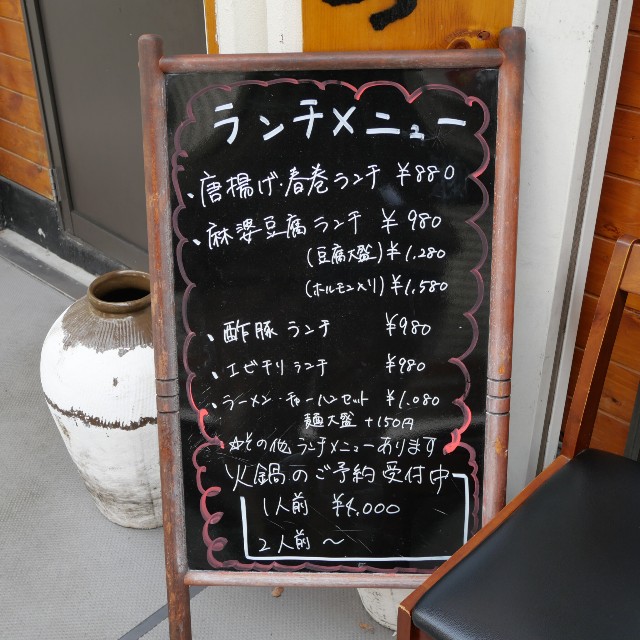 ランチメニュー
、唐揚げ・春巻ランチ ¥880
、麻婆豆腐ランチ ¥980
(豆腐大盛)¥1,280
(ホルモン入り)¥1,580
、酢豚ランチ ¥980
、エビチリランチ ¥980
、ラーメン・チャーハンセット ¥1,080
麺大盛 +150円
☆その他ランチメニューあります
火鍋のご予約受付中
1人前 ¥4,000
2人前〜